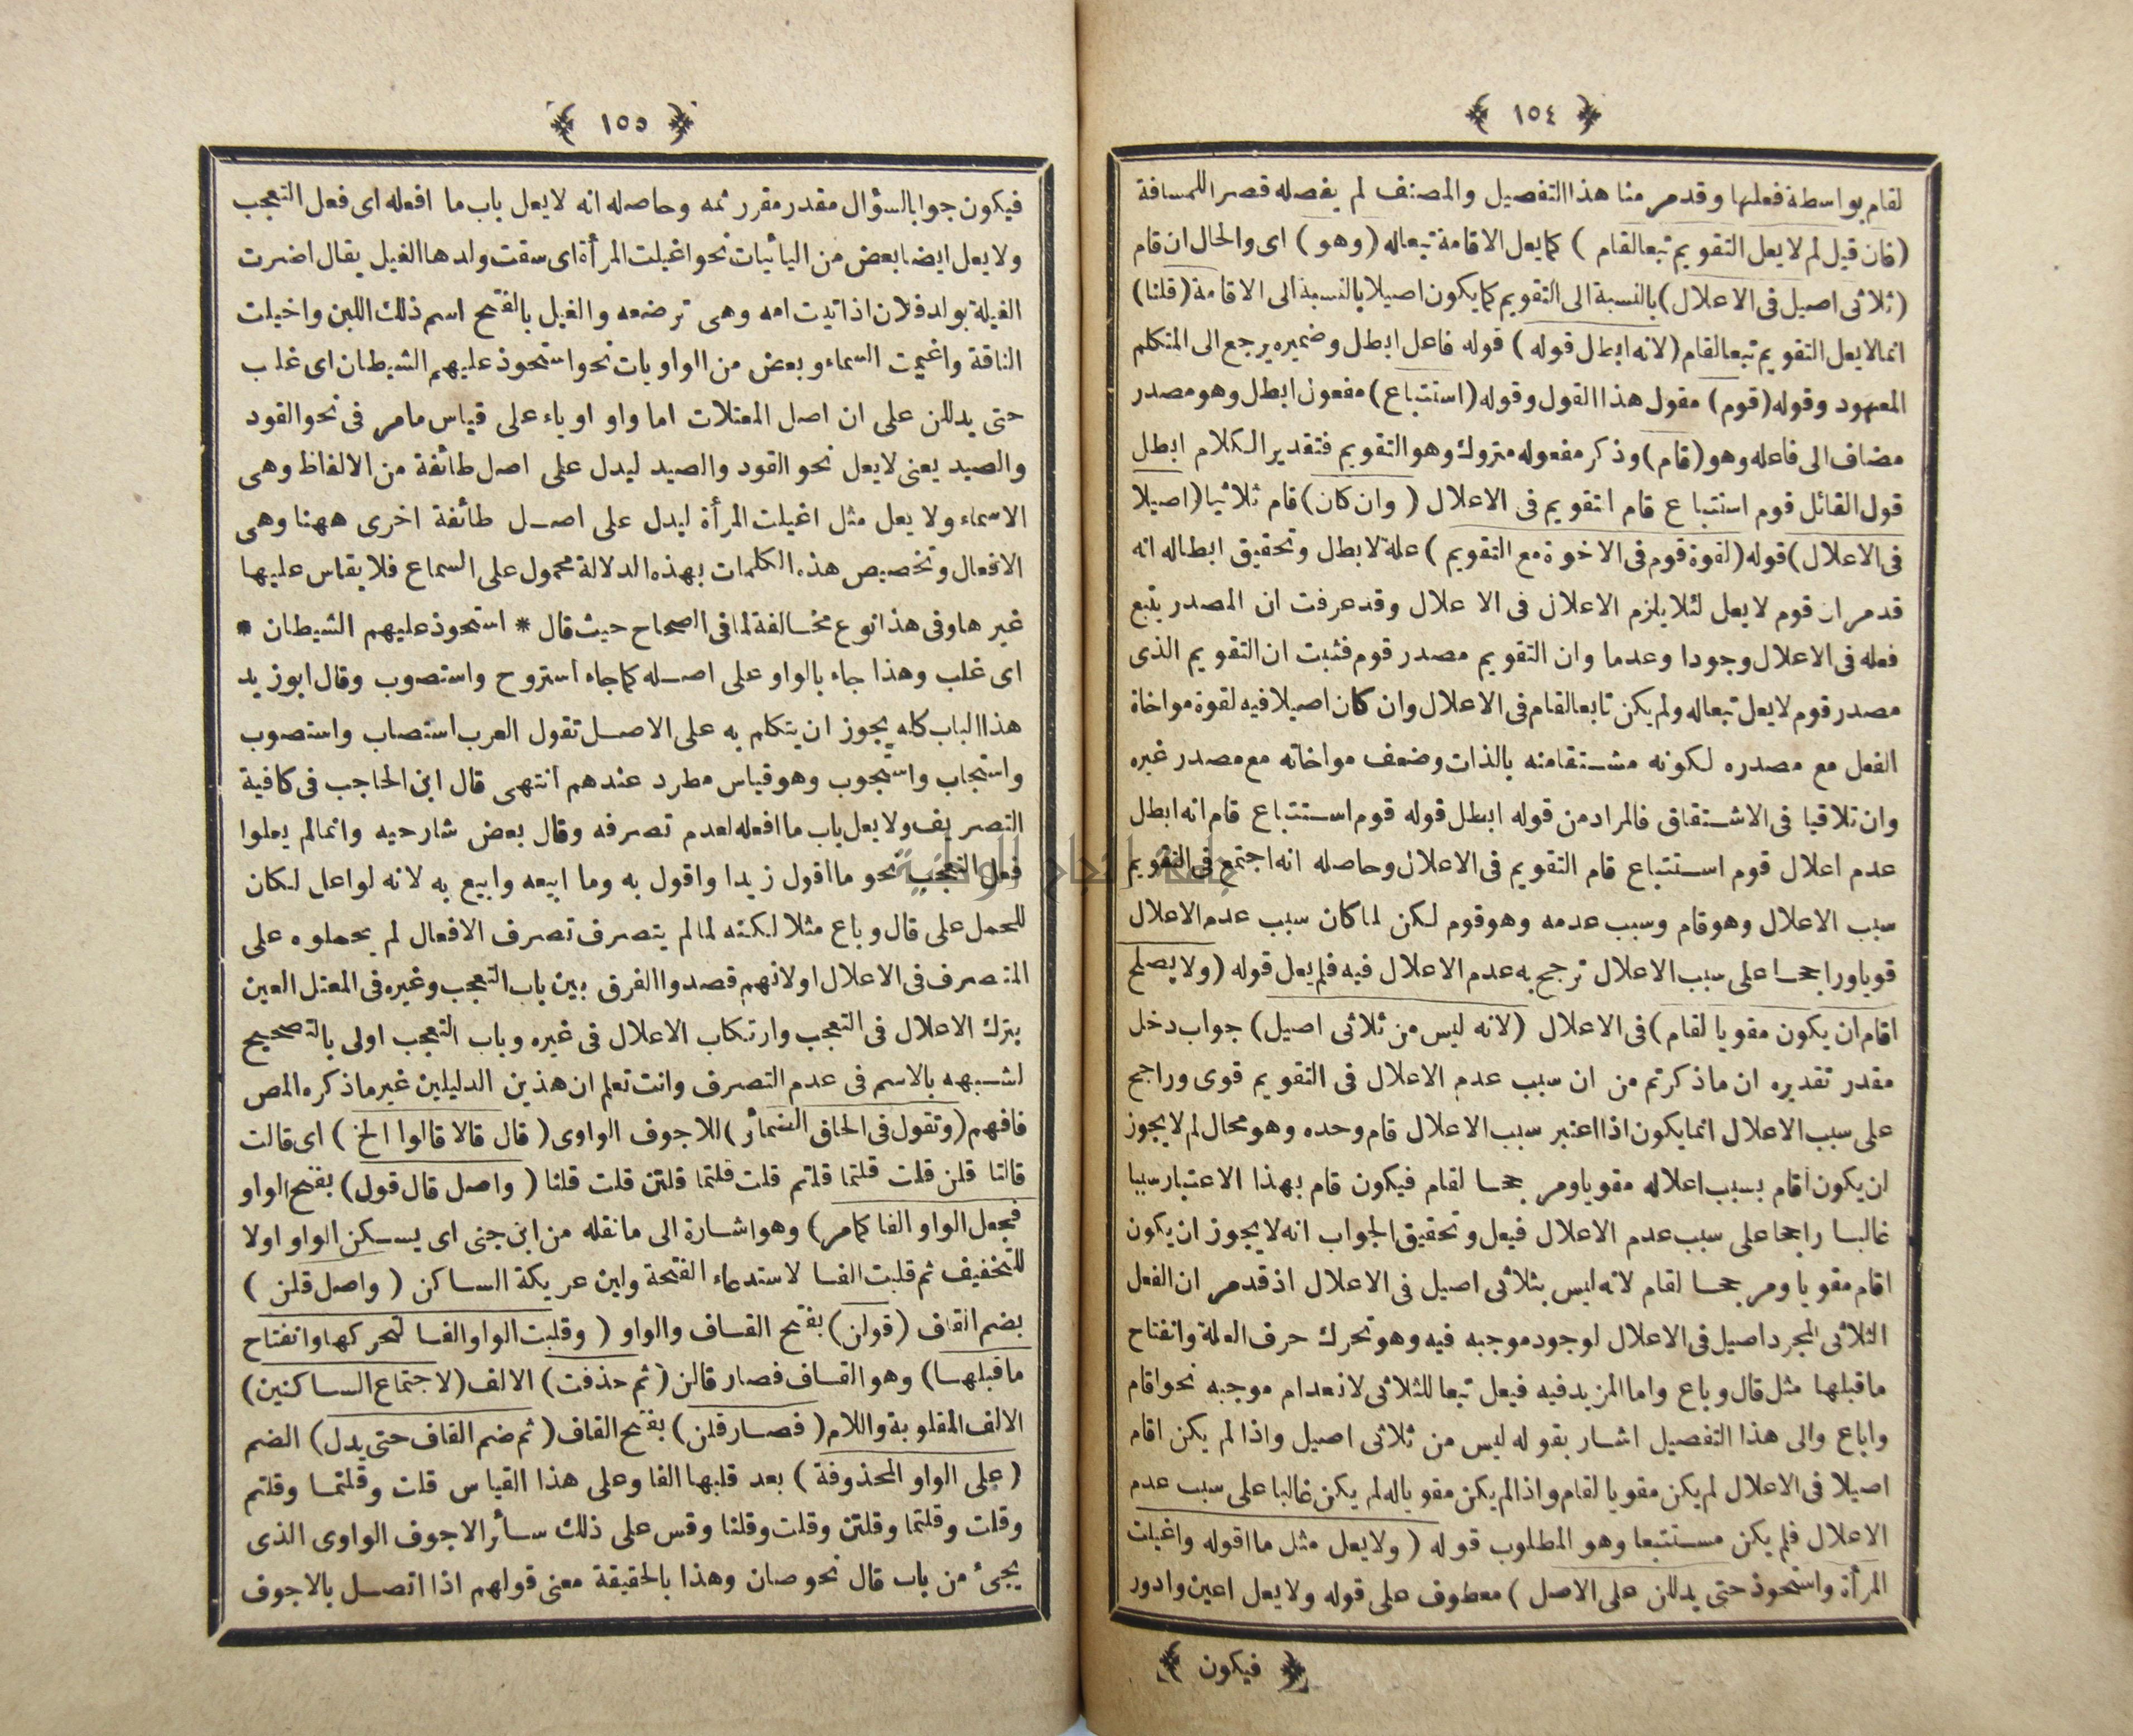 ﴿ ١٥٤ ﴾
لقام بواسطة فعلها وقد مر منا هذا التفصيل والمصنف لم يفصله قصرا للمسافة
(فان قيل لم لا يعل التقويم تبعا لقام ) كما يعل الاقامة تبعا له (وهو ) اى والحال ان قام
(ثلاثى اصيل فى الاعلال) بالنسبة الى التقويم كما يكون اصيلا بالنسبة الى الاقامة (قلنا)
انما لا يعل التقويم تبعا لقام (لانه ابطل قوله ) قوله فاعل ابطل وضميره يرجع الى المتكلم
المعهود وقوله (قوم) مقول هذا القول وقوله (استتباع) مفعول ابطل وهو مصدر
مضاف الى فاعله وهو (قام) وذكر مفعوله متروك وهو التقويم فتقدير الكلام ابطل
قول القائل قوم استتباع قام التقويم فى الاعلال ( وان كان) قام ثلاثيا (اصيلا
فى الاعلال) قوله (لقوة قوم فى الاخوة مع التقويم ) علة لابطل وتحقيق ابطاله انه
قد مر ان قوم لا يعل لئلا يلزم الاعلال فى الاعلال وقد عرفت ان المصدر يتبع
فعله فى الاعلال وجودا وعدما وان التقويم مصدر قوم فثبت ان التقويم الذى
مصدر قوم لا يعل تبعا له ولم يكن تابعا لقام فى الاعلال وان كان اصيلا فيه لقوة مواخاة
الفعل مع مصدره لكونه مشتقا منه بالذات وضعف مواخاته مع مصدر غيره
وان تلاقيا فى الاشتقاق فالمراد من قوله ابطل قوله قوم استتباع قام انه ابطل
عدم اعلال قوم استتباع قام التقويم فى الاعلال وحاصله انه اجتمع فى التقويم
سبب الاعلال وهو قام وسبب عدمه وهو قوم لكن لما كان سبب عدم الاعلال
قويا وراجحا على سبب الاعلال ترجح به عدم الاعلال فيه فلم يعل قوله (ولا يصلح
اقام ان يكون مقويا لقام ) فى الاعلال (لانه ليس من ثلاثى اصيل) جواب دخل
مقدر تقديره ان ما ذكرتم من ان سبب عدم الاعلال فى التقويم قوى وراجح
على سبب الاعلال انما يكون اذا اعتبر سبب الاعلال قام وحده وهو محال لم لا يجوز
ان يكون اقام بسبب اعلاله مقويا ومرجحا لقام فيكون قام بهذا الاعتبار سببا
غالبا راجحا على سبب عدم الاعلال فيعل وتحقيق الجواب انه لا يجوز ان يكون
اقام مقويا ومرجحا لقام لانه ليس بثلاثى اصيل فى الاعلال اذ قد مر ان الفعل
الثلاثى المجرد اصيل فى الاعلال لوجود موجبه فيه وهو تحرك حرف العلة وانفتاح
ما قبلها مثل قال وباع واما المزيد فيه فيعل تبعا للثلاثى لانعدام موجبه نحو اقام
واباع والى هذا التفصيل اشار بقوله ليس من ثلاثى اصيل واذا لم يكن اقام
اصيلا فى الاعلال لم يكن مقويا لقام واذا لم يكن مقويا له لم يكن غالبا على سبب عدم
الاعلال فلم يكن مستتبعا وهو المطلوب قوله ( ولا يعل مثل ما اقوله واغيلت
المرأة واستحوذ حتى يدللن على الاصل ) معطوف على قوله ولا يعل اعين وادور
﴿ فيكون ﴾
﴿ ١٥٥ ﴾
فيكون جوابا لسؤال مقدر مقرر ثمه وحاصله انه لا يعل باب ما افعله اى فعل التعجب
ولا يعل ايضا بعض من اليائيات نحو اغيلت المرأة اى سقت ولدها الغيل يقال اضرت
الغيلة بولد فلان اذا تيت امه وهى ترضعه والغيل بالفتح اسم ذلك اللبن واخيلت
الناقة واغيمت السماء وبعض من الواويات نحو استحوذ عليهم الشيطان اى غلب
حتى يدللن على ان اصل المعتلات اما واو او ياء على قياس ما مر فى نحو القود
والصيد يعنى لا يعل نحو القود والصيد ليدل على اصل طائفة من الالفاظ وهى
الاسماء ولا يعل مثل اغيلت المرأة ليدل على اصل طائفة اخرى ههنا وهى
الافعال وتخصيص هذه الكلمات بهذه الدلالة محمول على السماع فلا يقاس عليها
غيرها وفى هذا نوع مخالفة لما فى الصحاح حيث قال * استحوذ عليهم الشيطان *
اى غلب وهذا جاء بالواو على اصله كما جاء استروح واستصوب وقال ابو زيد
هذا الباب كله يجوز ان يتكلم به على الاصل تقول العرب استصاب واستصوب
واستجاب واستجوب وهو قياس مطرد عندهم انتهى قال ابن الحاجب فى كافية
التصريف ولا يعل باب ما افعله لعدم تصرفه وقال بعض شارحيه وانما لم يعلوا
فعل التعجب نحو ما اقول زيدا واقول به وما ابيعه وابيع به لانه لو اعل لكان
للحمل على قال وباع مثلا لكنه لما لم يتصرف تصرف الافعال لم يحملوه على
المتصرف فى الاعلال او لانهم قصدوا الفرق بين باب التعجب وغيره فى المعتل العين
بترك الاعلال فى التعجب وارتكاب الاعلال فى غيره وباب التعجب اولى بالتصحيح
لشبهه بالاسم فى عدم التصرف وانت تعلم ان هذين الدليلين غير ما ذكره المص
فافهم (وتقول فى الحاق الضمائر) للاجوف الواوى (قال قالا قالوا الخ ) اى قالت
قالتا قلن قلت قلتما قلتم قلت قلتما قلتن قلت قلنا ( واصل قال قول) بفتح الواو
فجعل الواو الفا كما مر) وهو اشارة الى ما نقله من ابن جنى اى يسكن الواو اولا
للتخفيف ثم قلبت الفا لاستدعاء الفتحة ولين عريكة الساكن ( واصل قلن )
بضم القاف (قولن) بفتح القاف والواو ( وقلبت الواو الفا لتحركها وانفتاح
ما قبلها) وهو القاف فصار قالن (ثم حذفت) الالف (لاجتماع الساكنين)
الالف المقلوبة واللام ( فصار قلن) بفتح القاف (ثم ضم القاف حتى يدل) الضم
(على الواو المحذوفة ) بعد قلبها الفا وعلى هذا القياس قلت وقلتما وقلتم
وقلت وقلتما وقلتن وقلت وقلنا وقس على ذلك سائر الاجوف الواوى الذى
يجئ من باب قال نحو صان وهذا بالحقيقة معنى قولهم اذا اتصل بالاجوف